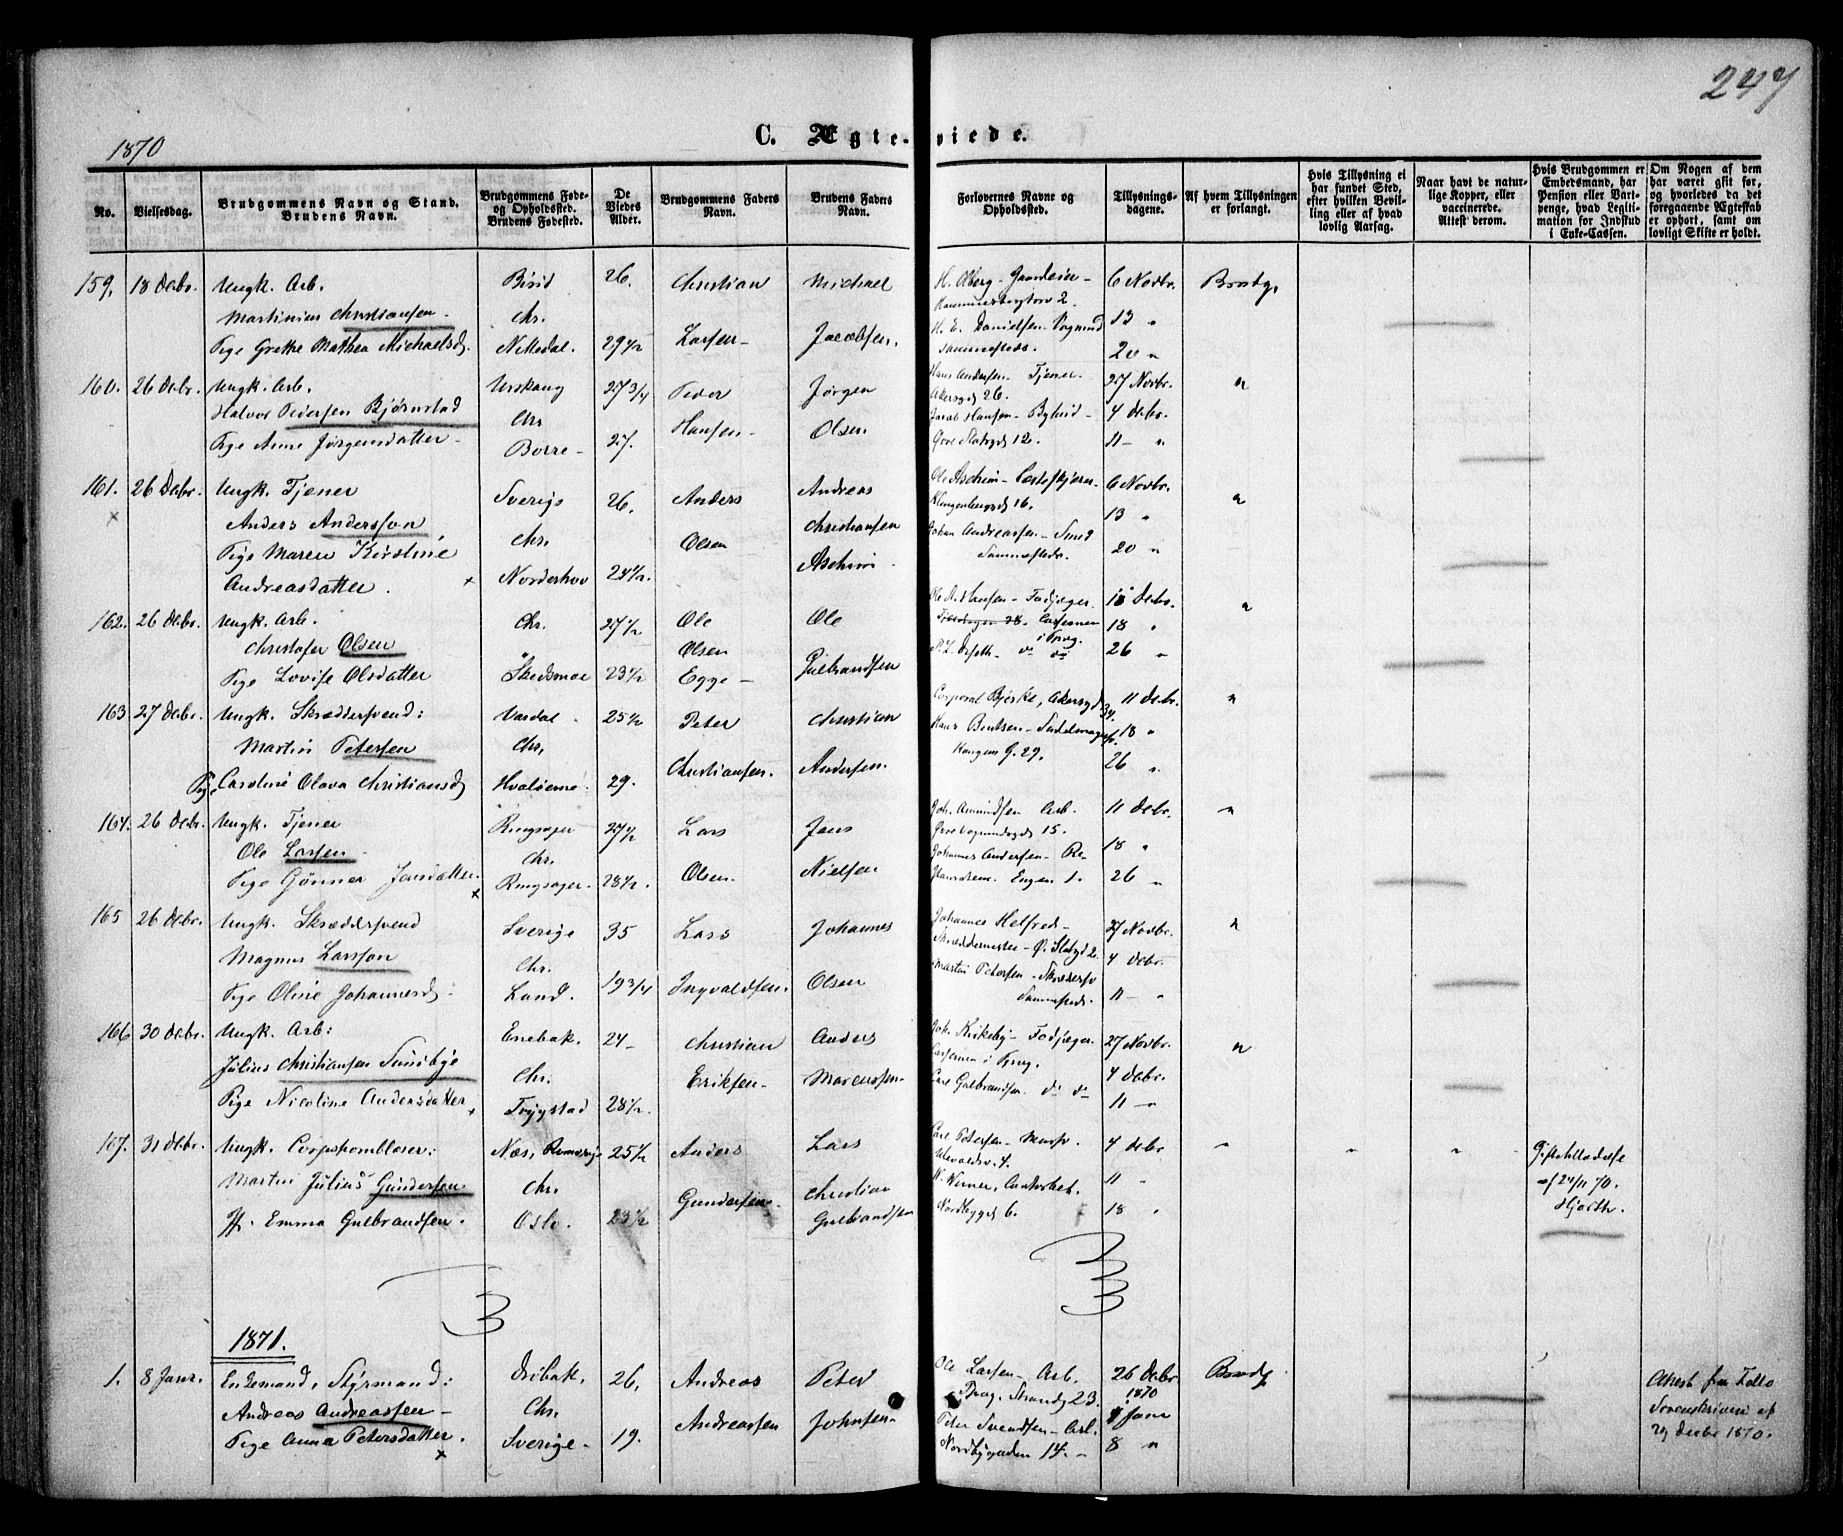 247
1870
C. Ægte-viede.
No.
Vielsesdag.
Brudgommens Navn og Stand.
Brudens Navn.
Brudgommens Føde-
og Opholdssted.
Brudens Fødested.
De
Viedes
Alder.
Brudgommens Faders
Navn.
Brudens Faders
Navn.
Forlovernes Navne og
Opholdssted.
Tillysnings-
dagene.
Af hvem Tillysningen
er forlangt.
Hvis Tillysning ei
har fundet Sted,
efter hvilken Bevil-
ling eller af hvad
lovlig Aarsag.
Naar havt de natur-
lige Kopper, eller
vaccinerede.
Attest derom.
Hvis Brudgommen er
Embedsmand, har
Pension eller Vart-
penge, hvad Legiti-
mation for Indskud
i Enke-Cassen.
Om Nogen af dem
har været gift før,
og hvorledes da det
foregaaende Ægteskab
er ophørt, samt om
lovligt Skifte er holdt.
159. 18 Debr. Ungk. Arb. Birid 26. Christian Michael H. Oberg - Gaardeier - 6 Novbr. Brudg.
Hammersborgtorv 2.
Martinius Christiansen - Chr. H. E. Danielsen - Vognmd 13 "
Pige Grethe Mathea Michaelsd. Nittedal. 29 1/2 Larsen - Jacobsen. Sammesteds. 20 "
160. 26 Debr. Ungk. Arb. Urskoug 27 3/4 Peder Jørgen Hans Andersen - Tjener. 27 Novbr. "
Akersgd 26.
Halvor Pedersen Bjørnstad Chr. Jacob Hansen - Bybud - 4 Debr.
Pige Anne Jørgensdatter - Borre - 27. Hansen - Olsen. Øvre Slotsgd 12. 11 - "
161. 26 Debr. Ungk. Tjener Sverige 26. Anders Andreas Ole Aschim - 6 Novbr. "
Klingenberggd 16.
Anders Andersson Chr. Christiansen 13 "
Pige Maren Kirstine Olsen Johan Andreassen - Smed 20 "
Andreasdatter. × Norderhov 24 1/2. Aschim Sammesteds.
162. 26 Debr. Ungk. Arb. Chr. 27 1/2 Ole Ole Ole A. Hansen - Fodjæger. 11 Debr. "
Christofer Olsen Olsen 18 "
Pige Lovise Olsdatter Skedsmoe 23 1/2 Egge - Gulbrandsen 26 "
163 27 Debr. Ungk. Skræddersvend: Vardal - 25 1/2 Peter Christian Corporal Bjerke, Akersgd 34. 11 Debr. "
Martin Petersen Chr. Hans Bentsen - Sadelmagersv. 18 "
Pige Caroline Olava Christiansd Hvaløerne 29. Christiansen. Andersen. Kongens G. 29. 26 "
164. 26 Debr. Ungk. Tjener Ringsager 27 1/2 Lars Jens Joh. Amundsen Arb. 11 Debr. "
Øvre Vognmdsgd 15.
Ole Larsen - Chr. Johannes Andersen - 18 "
Pige Gønner Jensdatter. × Ringsager. 28 1/2. Olsen. Nielsen Engen 1. 26 "
165 26 Debr. Ungk. Skræddersvend Sverige 35 Lars Johannes Johannes Helfred - 27 Novbr. "
Skræddermester - Ø. Slotsgd 2.
Magnus Larsson Chr. Martin Petersen - Skrædersv 4 Debr.
Pige Oline Johannesd. Land. 19 3/4 Ingvaldsen. Olsen Sammesteds. 11 - "
166 30 Debr. Ungk. Arb: Enebak. 24 - Christian Anders Joh. Kirkeby - Fodjæger. 27 Novbr. "
Julius Christiansen Sundbye Chr. Eriksen - Marcussen - 4 Debr.
Pige Nicoline Andersdatter × Trygstad 28 1/2. Carl Gulbrandsen do do 11 - "
167. 31 Debr. Ungk. Corpshornblæser: Næs, Romerige 25 1/2 Anders Lars Carl Petersen - 4 Debr " " " Giftetilladelse
Ulevoldsv. 4.
Martin Julius Gundersen. Chr. Gundersen. Christian 11 " af 24/11 70.
Jfr. Emma Gulbrandsen. Oslo. 23 1/2 Gulbrandsen Nordbygd 6. 18 " Hjorth.
1871.
1. 8 Janr. Enkemand, Styrmand: Drøbak. 26. Andreas Peter Ole Larsen - Arb. 26 Debr. Brudg Attest fra Follo
1870
Andreas Andreassen - Chr. Andreassen Johnsen - Strandg 23. 1 Janr Sorenskriveri af
Pige Anna Petersdatter. × Sverige - 19. Peter Svendsen - Arb. 29 Debr 1870.
Nordbygaden 14. - 8 "